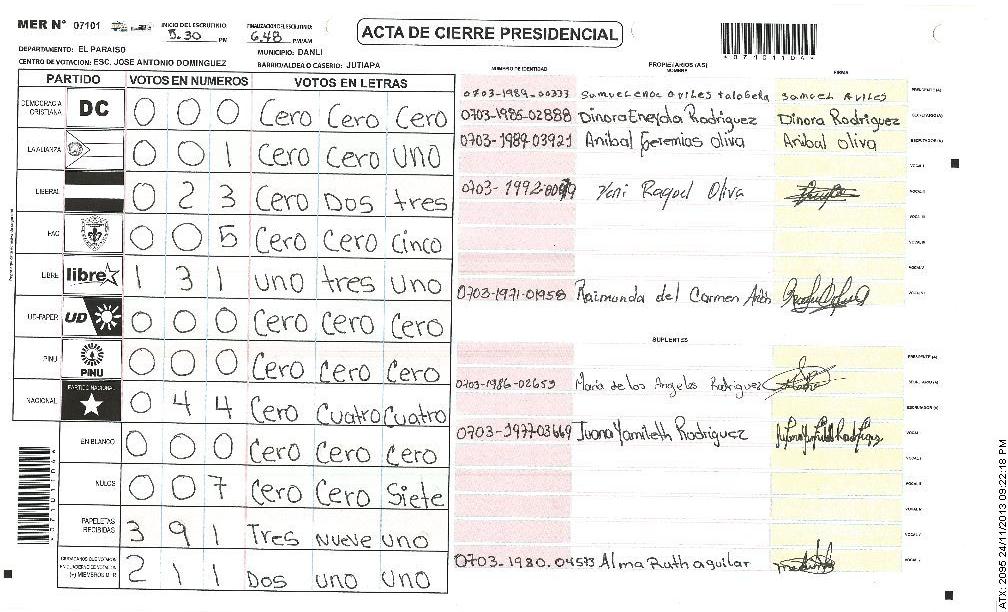 MER N° 07101 INICIO DEL ESCRUTINIO: 5.30 PM FINALIZACION DEL ESCRUTINIO: 6.48 PM/AM
ACTA DE CIERRE PRESIDENCIAL
DEPARTAMENTO: EL PARAISO MUNICIPIO: DANLI
CENTRO DE VOTACION: ESC. JOSE ANTONIO DOMINGUEZ BARRIO/ALDEA O CASERIO: JUTIAPA
PARTIDO VOTOS EN NUMEROS VOTOS EN LETRAS
DEMOCRACIA CRISTIANA DC 0 0 0 Cero Cero Cero
LA ALIANZA 0 0 1 Cero Cero uno
LIBERAL 0 2 3 Cero Dos tres
PAC 0 0 5 Cero Cero Cinco
LIBRE libre 1 3 1 uno tres uno
UD-FAPER UD 0 0 0 Cero Cero Cero
PINU PINU 0 0 0 Cero Cero Cero
NACIONAL PARTIDO NACIONAL 0 4 4 Cero Cuatro Cuatro
EN BLANCO 0 0 0 Cero Cero Cero
NULOS 0 0 7 Cero Cero Siete
PAPELETAS RECIBIDAS 3 9 1 Tres nueve uno
2 1 1 Dos uno uno
NUMERO DE IDENTIDAD PROPIETARIOS (AS) NOMBRE FIRMA
0703-1989-00333 Samuel Enoc Aviles Talabera Samuel Aviles PRESIDENTE (A)
0703-1986-02888 Dinora Enejda Rodriguez Dinora Rodriguez SECRETARIO (A)
0703-1984-03921 Anibal Geremias Oliva Anibal Oliva ESCRUTADOR (A)
VOCAL I
0703-1992- Yeni Raquel Oliva VOCAL II
VOCAL III
VOCAL IV
VOCAL V
0703-1971-01958 Raimunda del Carmen
SUPLENTES
PRESIDENTE (A)
0703-1986-02653 Maria de los Angeles Rodriguez SECRETARIO (A)
ESCRUTADOR (A)
0703-1977-03669 Ivona Yamileth Rodriguez VOCAL I
VOCAL II
VOCAL III
VOCAL IV
VOCAL V
0703-1980-04573 Alma Ruth aguilar
*071011DA*
ATX: 2095 24/11/2013 09:22:18 PM